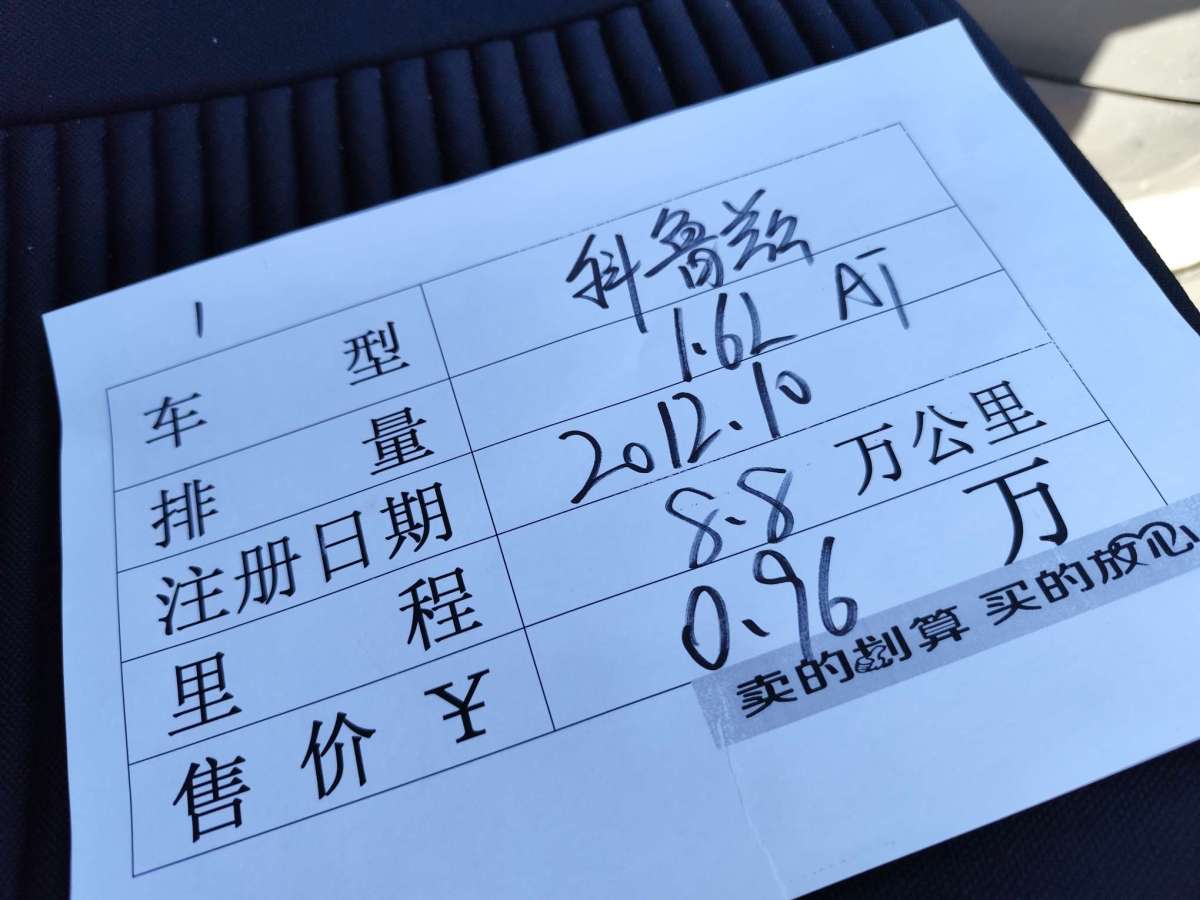 1
车型 科鲁兹
排量 1.6L AT
注册日期 2012.10
里程 8.8 万公里
售价 ¥ 0.96 万
卖的划算 买的放心